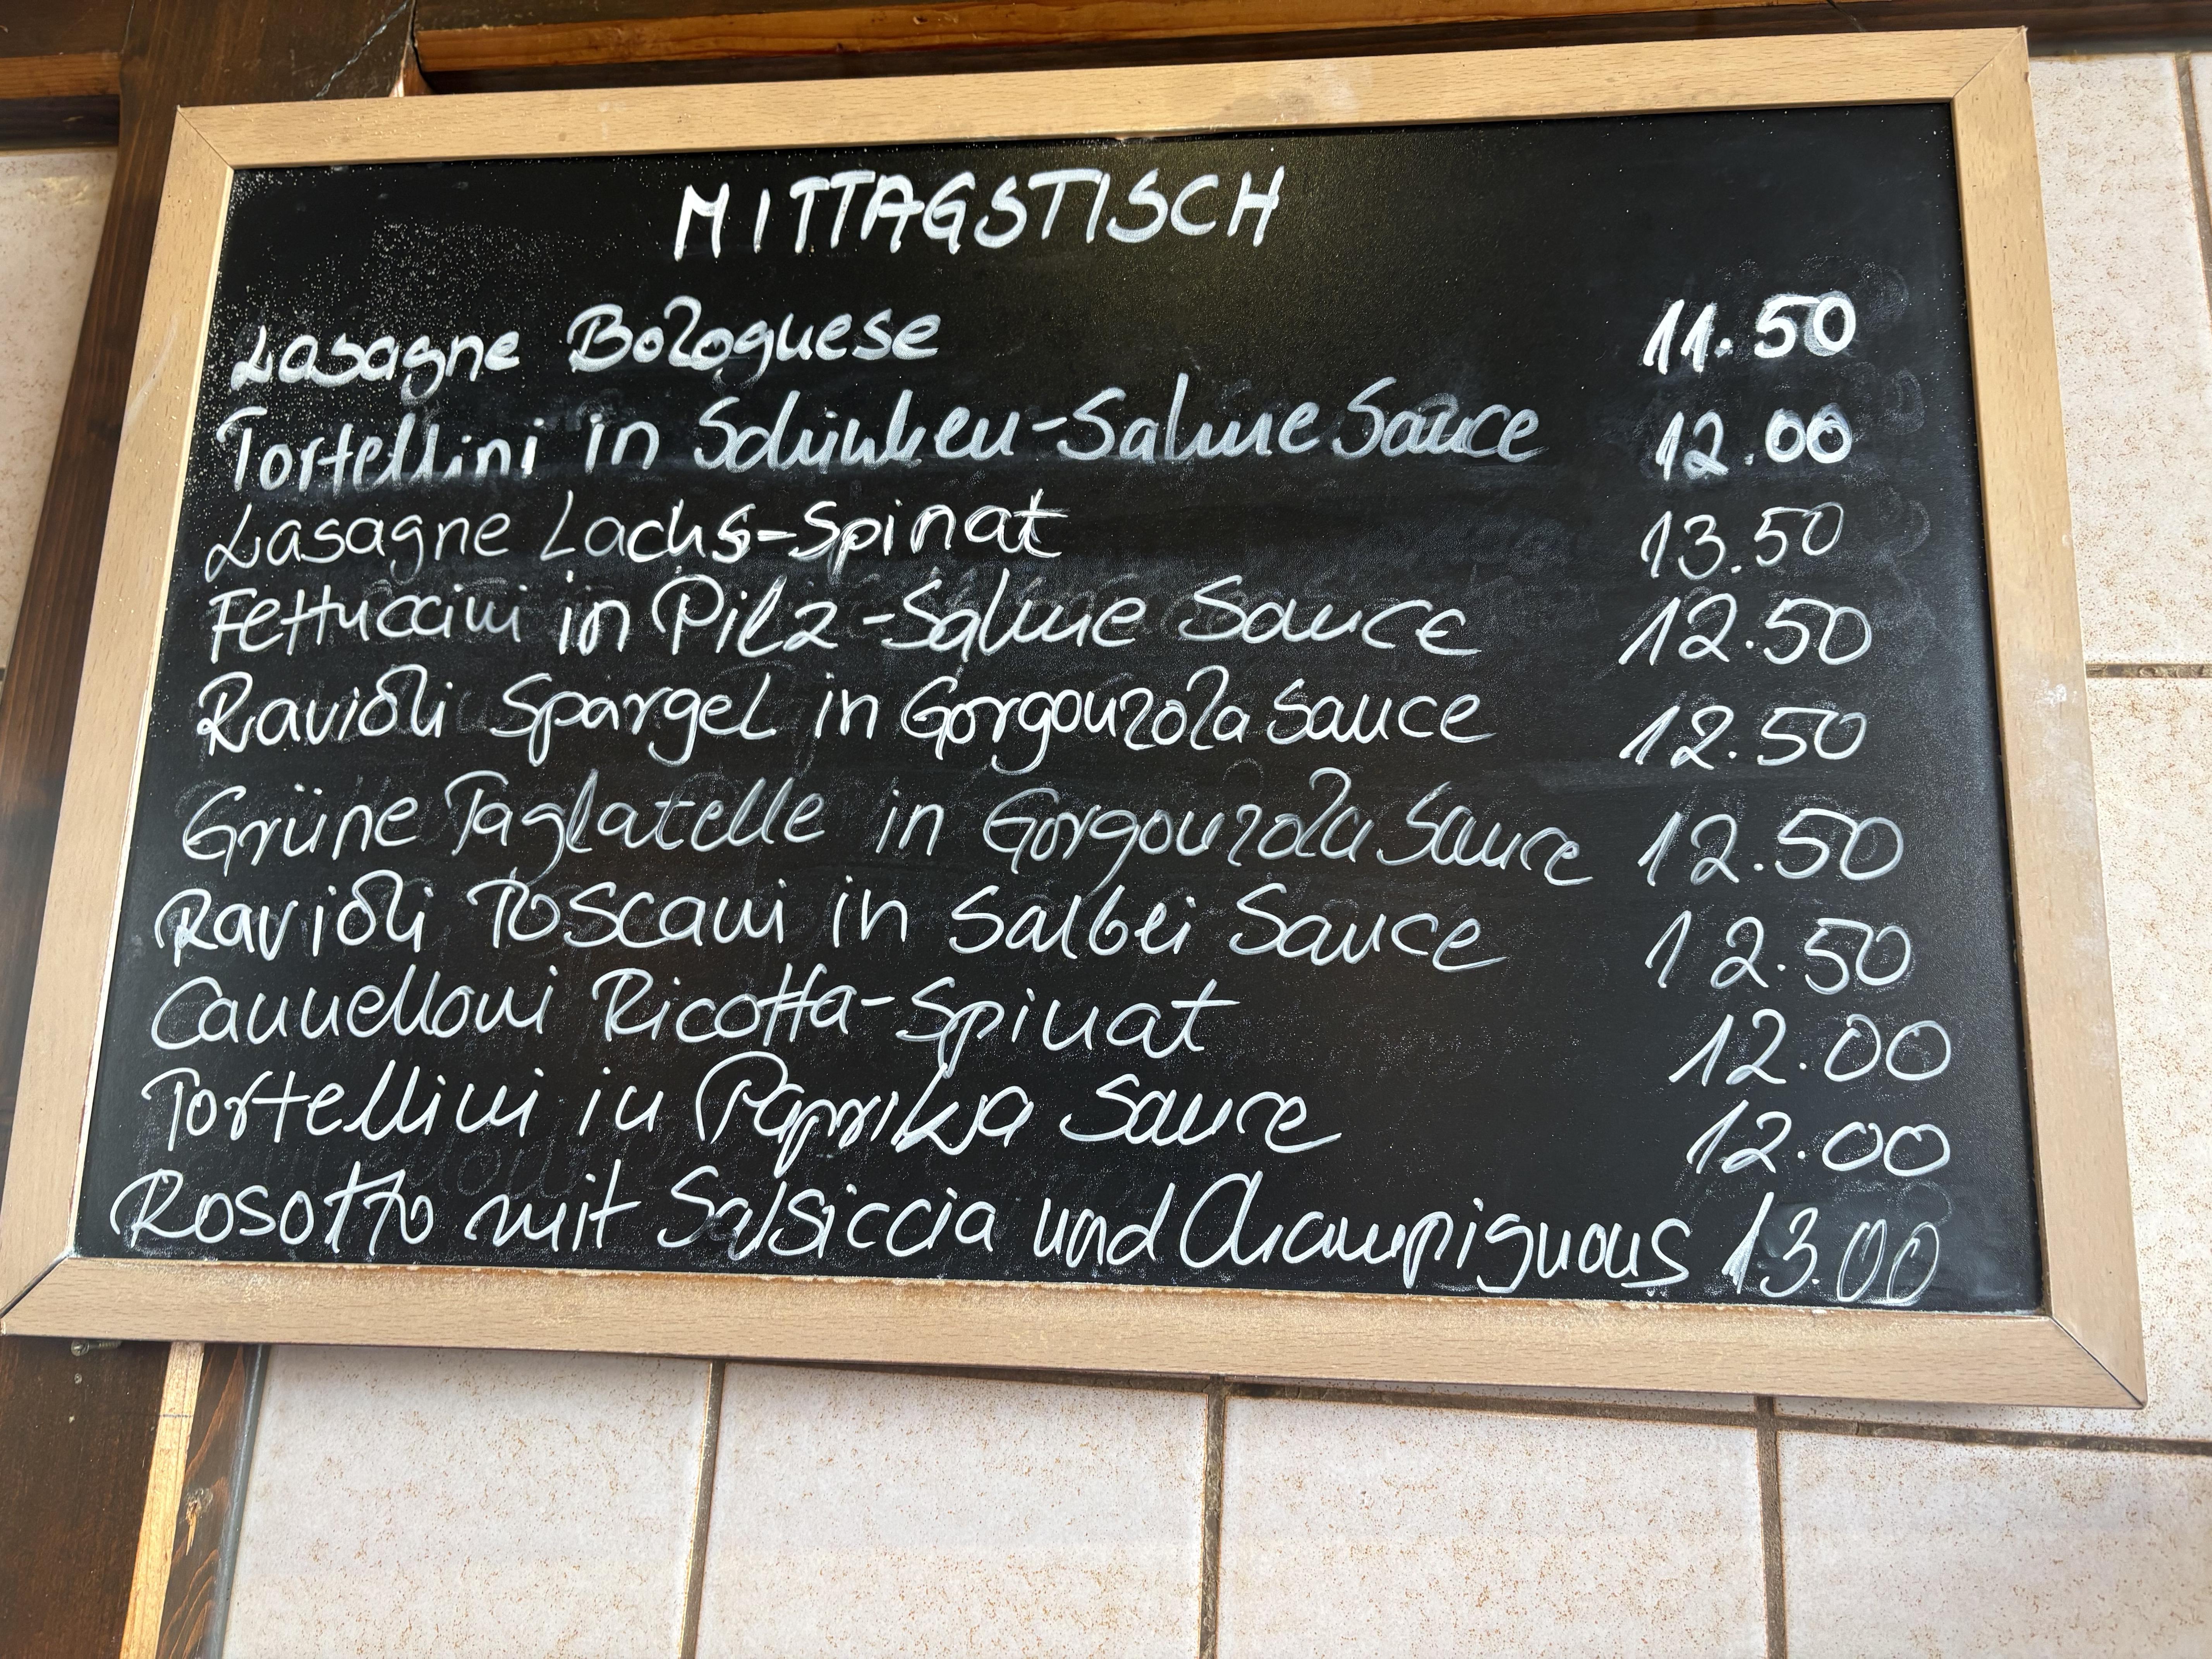 MITTAGSTISCH
Lasagne Bolognese 11.50
Tortellini in Schinken-Sahne Sauce 12.00
Lasagne Lachs-Spinat 13.50
Fettuccini in Pilz-Sahne Sauce 12.50
Ravioli Spargel in Gorgonzola Sauce 12.50
Grüne Taglatelle in Gorgonzola Sauce 12.50
Ravioli Toscani in Salbei Sauce 12.50
Cannelloni Ricotta-Spinat 12.00
Tortellini in Paprika Sauce 12.00
Rosotto mit Salsiccia und Champignons 13.00